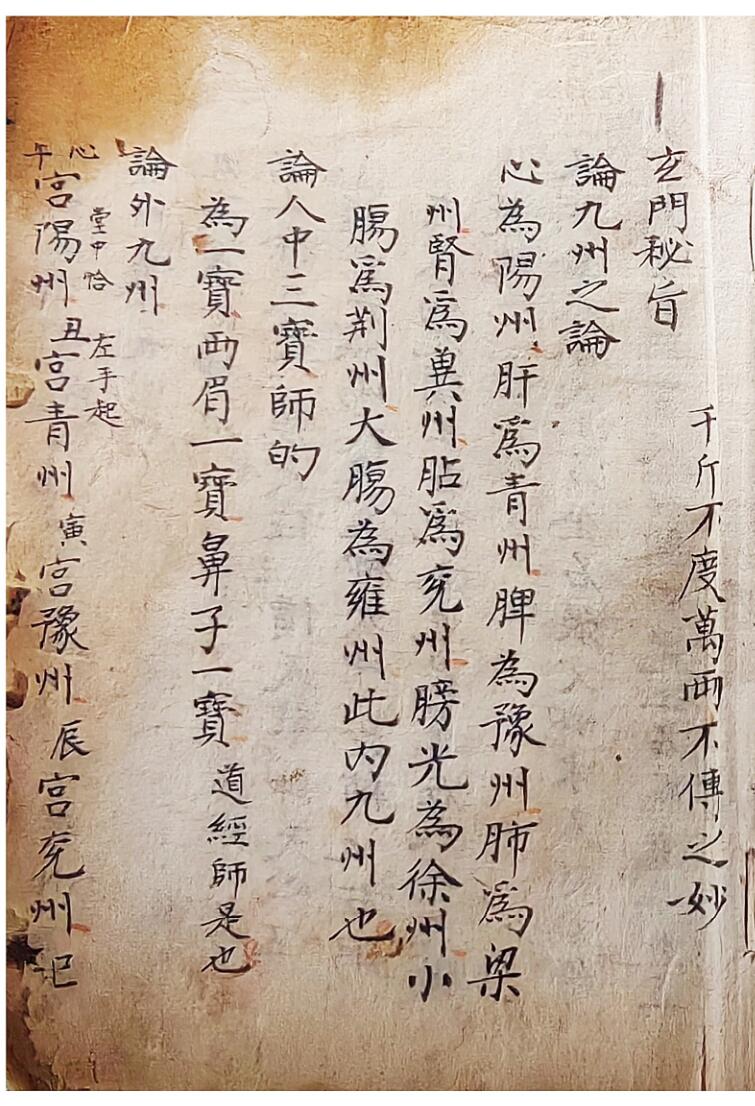 玄門秘旨
千斤不度萬両不傳之妙
論九州之論
心為陽州肝爲青州脾為豫州肺爲梁
州腎爲兾州胋爲兖州膀光為徐州小
腸爲荆州大腸為雍州此内九州也
論人中三寶師的
為一寶両眉一寶鼻子一寶道經師是也
論外九州
心 堂中恰 左手起
午宫陽州丑宫青州寅宫豫州辰宫兖州